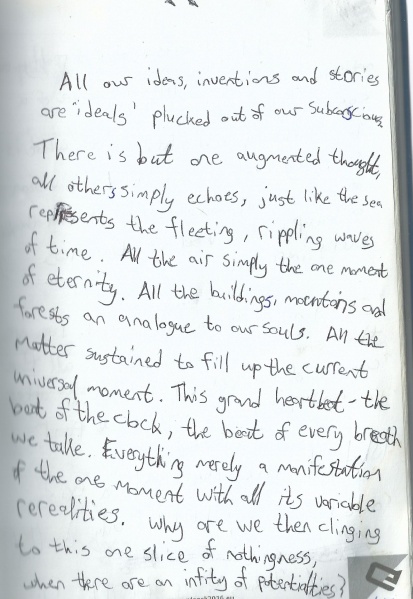 All our ideas, inventions and stories
are "ideals' plucked out of our subconscious
There is but one augmented thought,
all others simply echoes, just like the sea
represents the fleeting, rippling waves
of time. All the air simply the one moment
of eternity. All the buildings, mountains and
forests an analogue to our souls. All the
matter sustained to fill up the current
universal moment. This grand heartbeat - the
beat of the clock, the beat of every breath
we take. Everything merely a manifestation
of the one moment with all its variable
rerealities. Why are we then clinging
to this one slice of nothingness,
when there are an infity of potentialities?